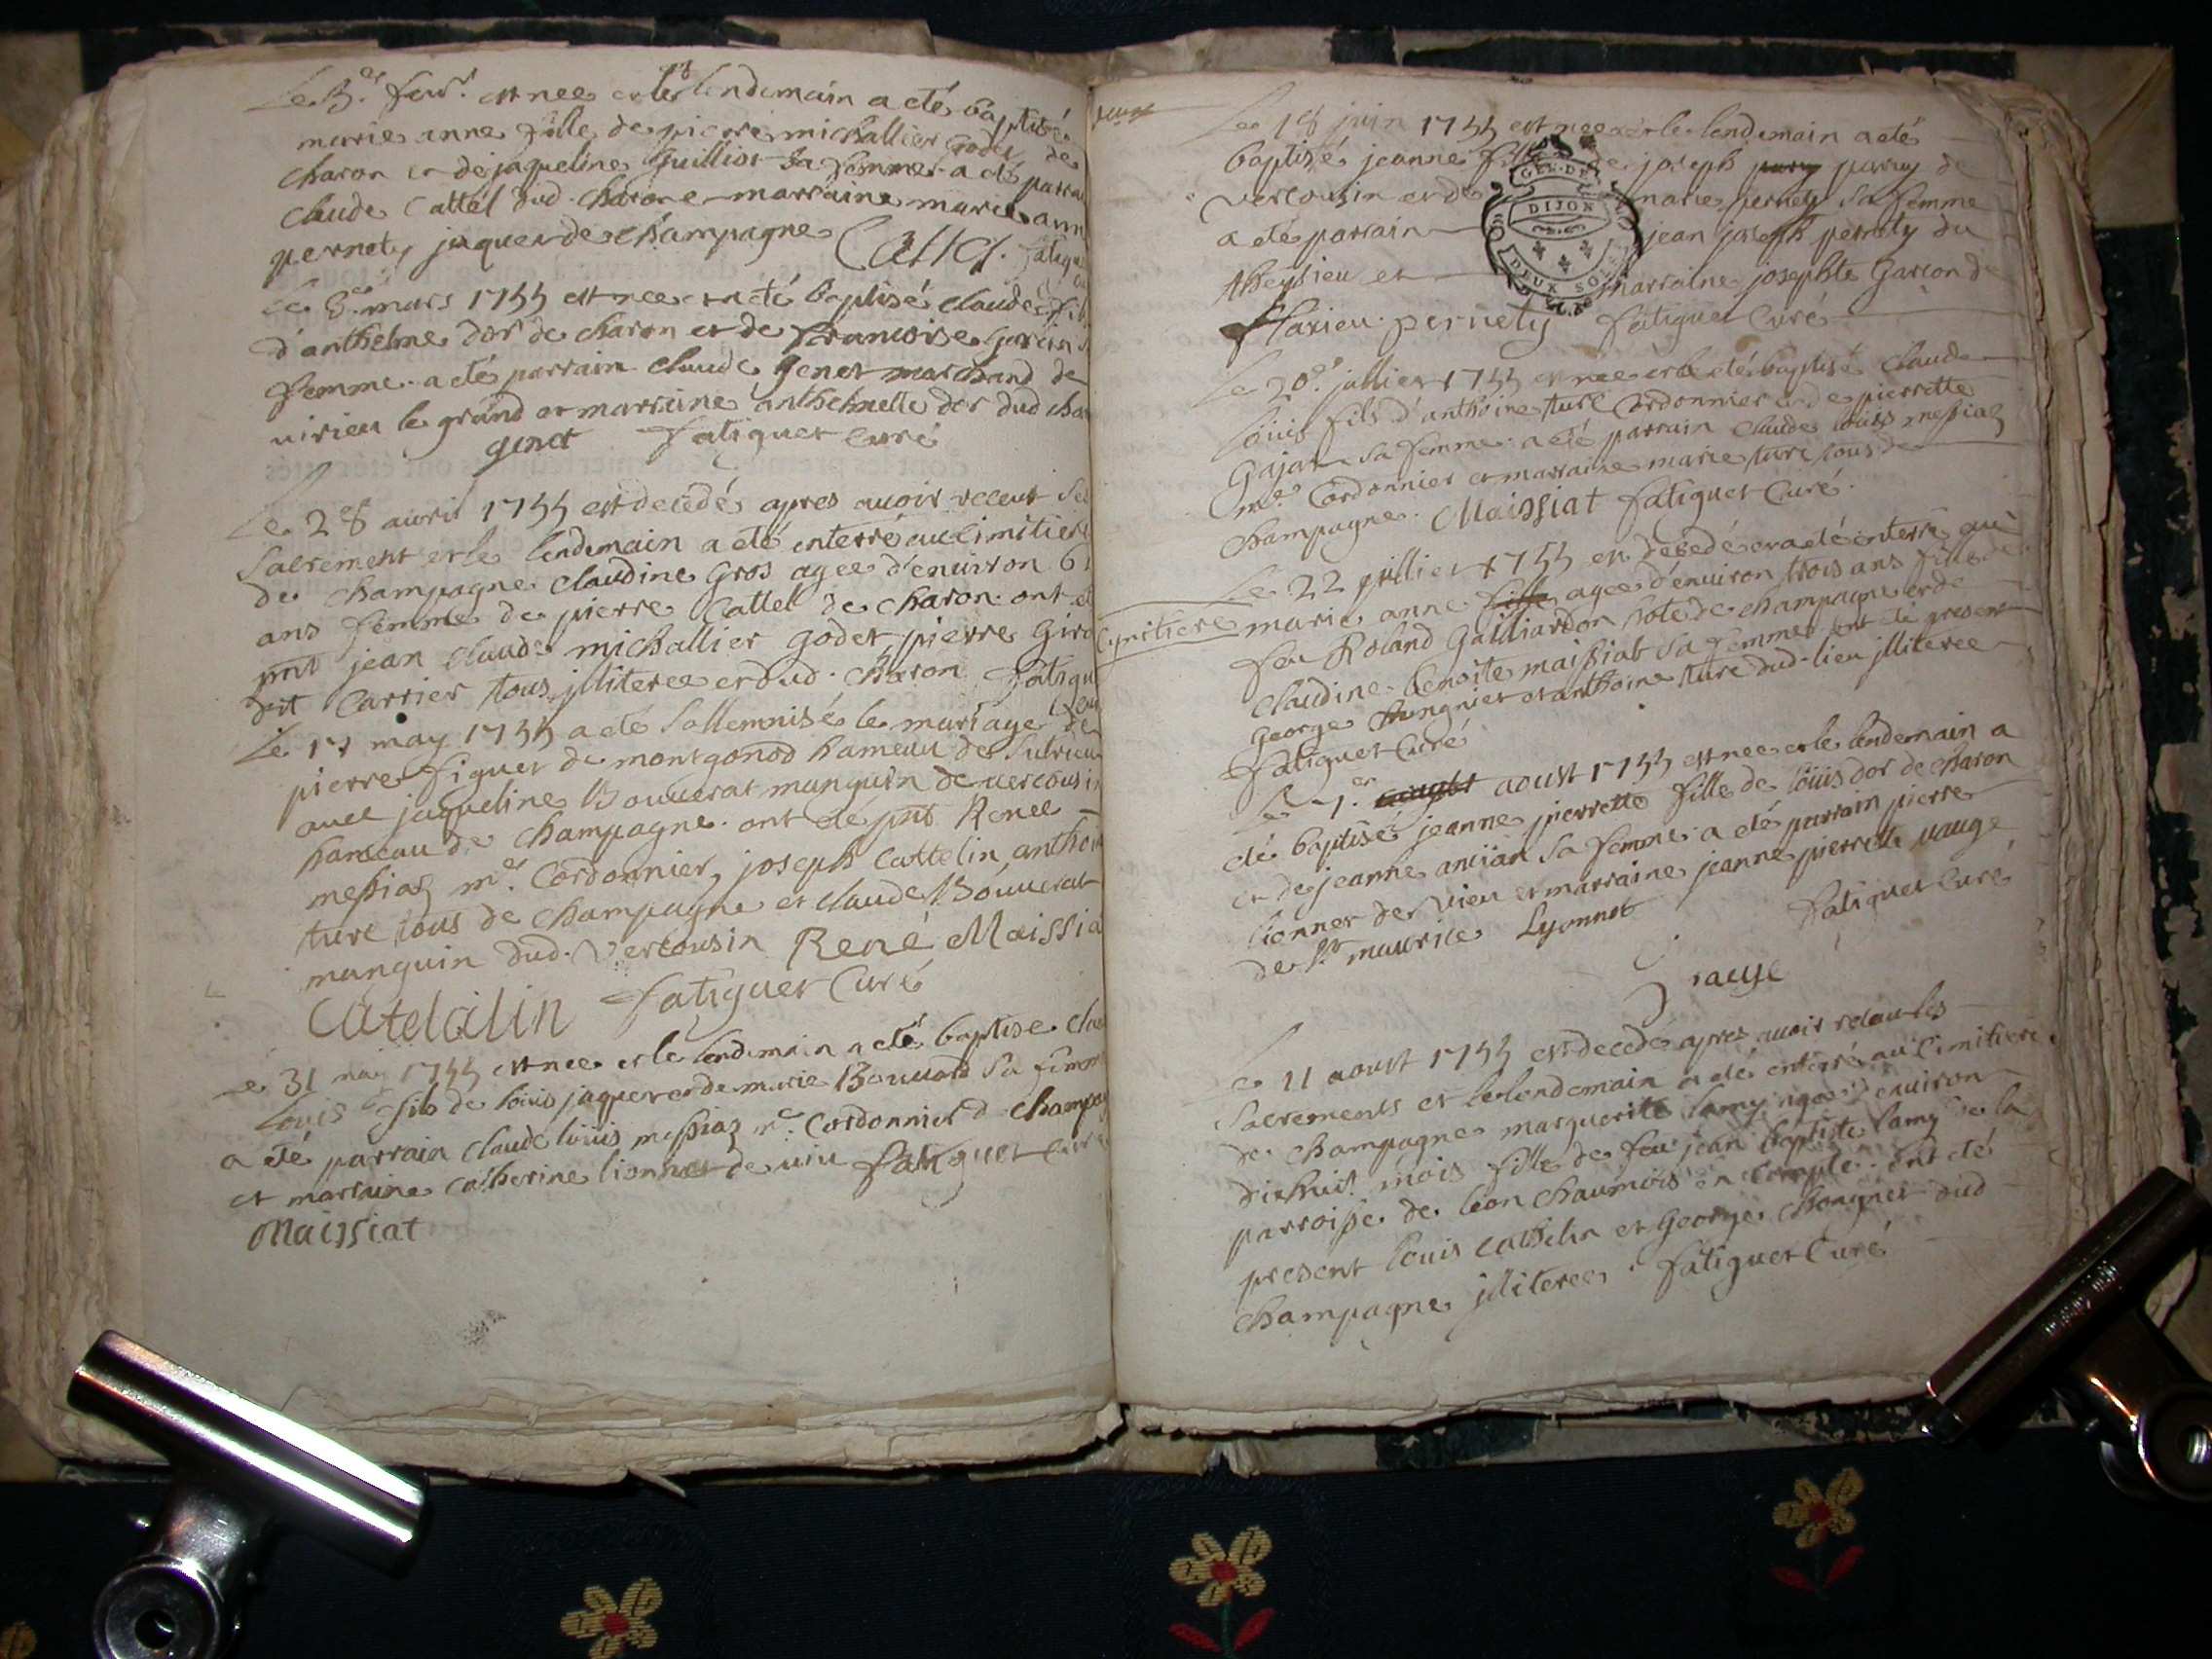 est nee et le lendemain a eté baptisé
marie anne fille de pierre michallier godet de
charon et de jaqueline Guilliot sa femme a eté parrai
claude Cattel dud. charon e marraine marie ann
pernety jaquet de champagne Cattel. fatigu
Le 8.e mars 1755 est nee et a eté baptisé claude fil
d'anthelme dor de charon et de francoise garin s
femme. a eté parrain claude genet marchand de
virieu le grand et marraine anthelmette dor dud cha
genet fatiguet curé
Le 28 avril 1755 est decédé apres avoir receut ses
sacrement et le lendemain a eté enterré au cimitiere
de champagne claudine Gros agee d'environ 6
ans femme de pierre Cattel de charon. ont et
pnt jean claude michallier godet, pierre Giro
dit Carrier tous jlliteree et dud. charon fatigu
Le 17 may 1755 a eté sollemnisé le mariage de
pierre figuet de montgonod hameau de sutrieu
avec jaqueline Bouverat manguin de vercousin
hameau de champagne. ont eté pnts Renee
messiaz m.e Cordonnier, joseph cattelin, anthoi
turc tous de champagne et claude Bouverat
manguin dud. vercousin René Maissia
Catelailin fatiguet Curé
Le 31 may 1755 est nee et le lendemain a eté baptise clau
louis fils de loüis jaquet et de marie Bouvard sa femm
a eté parrain claude loüis messiaz m.e Cordonnier d champa
et marraine catherine lionnet de vieu fatiguet curé
Maissiat
Le 18 juin 1755 est nee et le lendemain a eté
baptisé jeanne fille de joseph parry parry de
vercousin et de marie pernety sa femme
a eté parrain jean joseph pernety du
Abergieu et marraine josephte Garcon de
flaxieu. pernety fatiguet Curé
GEN. DE
DIJON
DEUX SOLS
Le 20.e jullier 1755 est nee et a eté baptisé claude
loüis fils d'anthoine turc Cordonnier et de pierrette
Gajan sa femme. a eté parrain claude loüis messiaz
m.e Cordonnier et marraine marie turc tous de
champagne. Maissiat fatiguet Curé.
Le 22 jullier 1755 est decedé et a eté enterré au
cymitiere marie anne fille agee d'environ trois ans fille de
feu Roland Galliardon hote de champagne et de
claudine benoite maissiat sa femme. ont eté present
George chongniet et anthoine turc dud. lieu jlliteree
fatiguet Curé
Le 1.er aoust 1755 est nee et le lendemain a
eté baptisé jeanne pierrette fille de loüis dor de charon
et de jeanne anciian sa femme. a eté parrain pierre
lionnet de vieu et marraine jeanne pierrette vauge
de s.t maurice Lyonnet fatiguet Curé
vauge
Le 11 aoust 1755 est decedé apres avoir receu les
sacrements et le lendemain a eté enterré au cimitiere
de champagne marguerite lamy agee d'environ
dixhuit mois fille de feu jean baptiste lamy de la
parroisse de leon chaumois en Comple. ont eté
present loüis cathelin et George chongniet dud
champagne jlliteree. fatiguet Curé